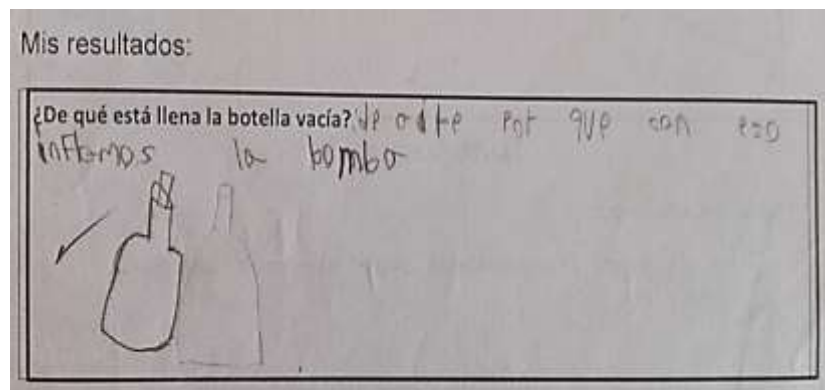 Mis resultados:
¿De qué está llena la botella vacía? de aire por que con eso
inflamos la bomba